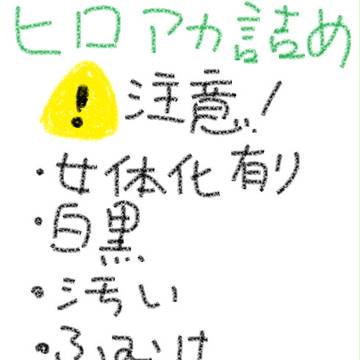 ヒロアカ詰め
注意!
・女体化有り
・白黒
・汚い